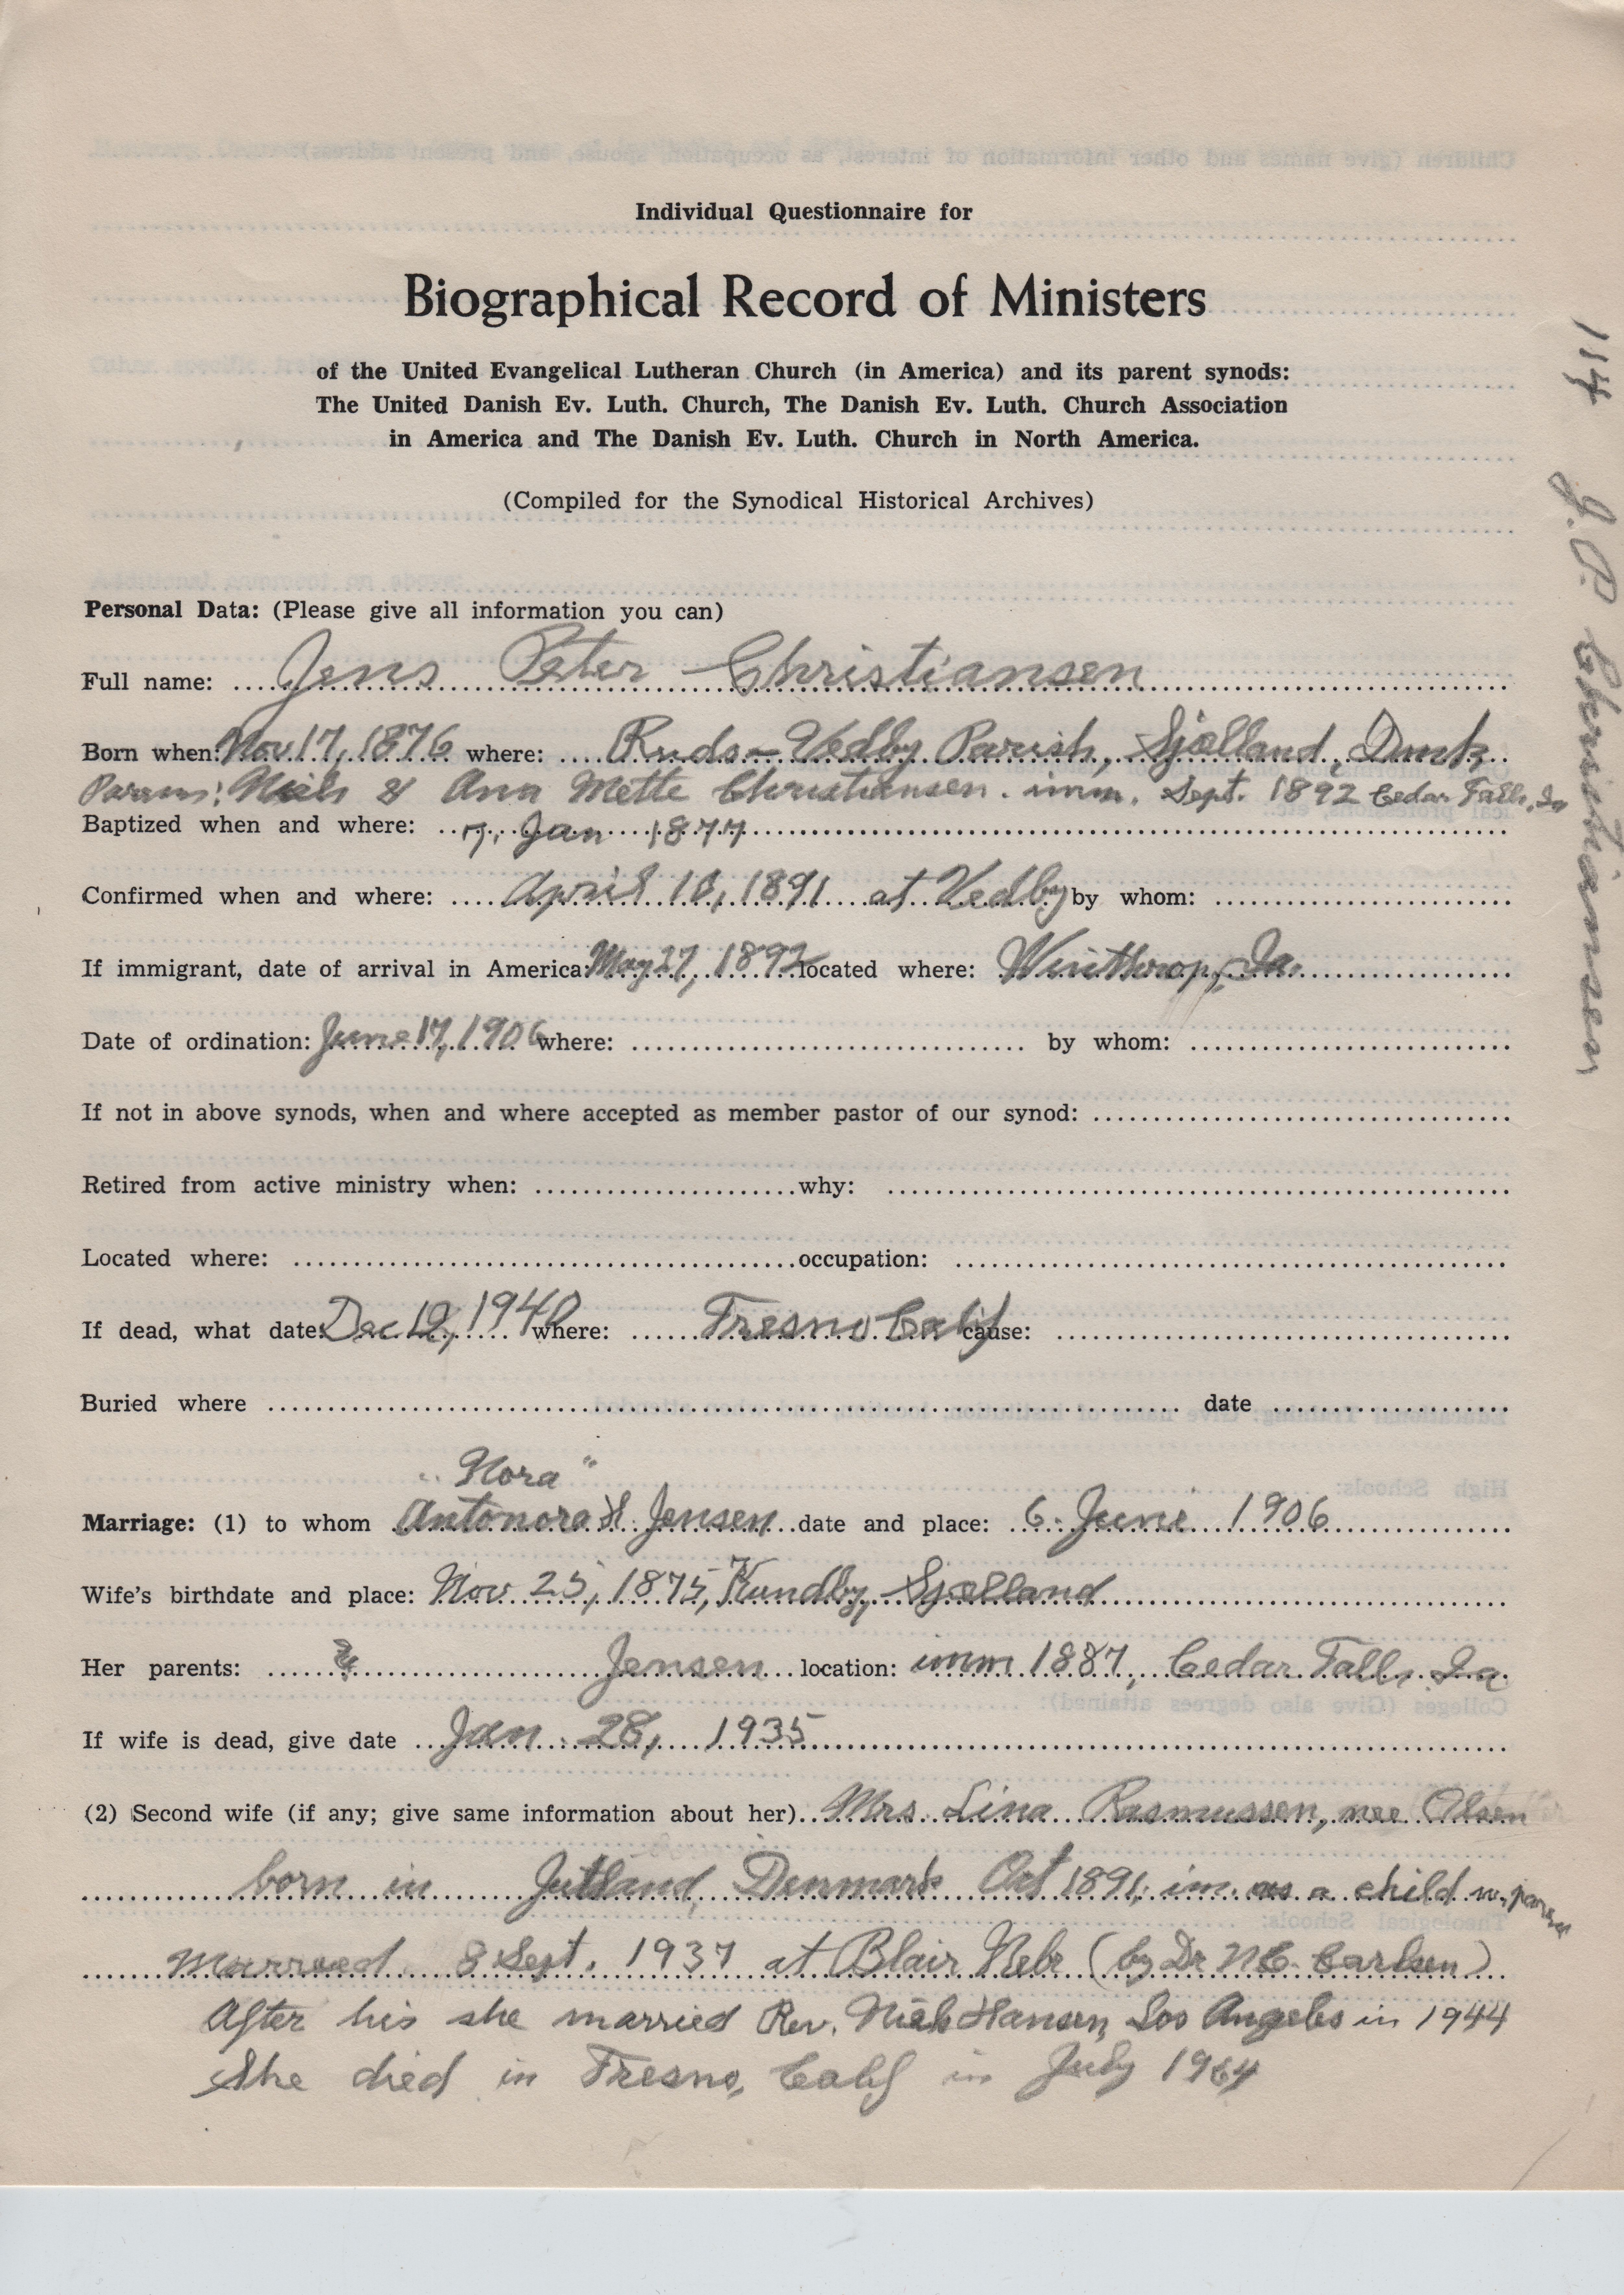 Individual Questionnaire for
Biographical Record of Ministers
of the United Evangelical Lutheran Church (in America) and its parent synods:
The United Danish Ev. Luth. Church, The Danish Ev. Luth. Church Association
in America and The Danish Ev. Luth. Church in North America.
(Compiled for the Synodical Historical Archives)
114 J. P. Christiansen
Personal Data: (Please give all information you can)
Full name: Jens Peter Christiansen
Born when: Nov 17, 1876 where: Ruds-Vedby Parish, Sjælland, Dmk,
Parens: Niels & Ana Mette Christiansen. imm. Sept. 1892 Cedar Falls, Ia
Baptized when and where: 7. Jan 1877
Confirmed when and where: April 10, 1891 at Vedby by whom:
If immigrant, date of arrival in America: May 27, 1892 located where: Winthrop, Ia.
Date of ordination: June 17, 1906 where: by whom:
If not in above synods, when and where accepted as member pastor of our synod:
Retired from active ministry when: why:
Located where: occupation:
If dead, what date: Dec 12, 1940 where: Fresno Calif cause:
Buried where date
"Nora"
Marriage: (1) to whom Antonora H. Jensen date and place: 6. Juni 1906
Wife's birthdate and place: Nov 25, 1875, Kundby, Sjælland
Her parents: Jensen location: imm 1887, Cedar Falls Ia
If wife is dead, give date Jan. 28, 1935
(2) Second wife (if any; give same information about her) Mrs. Lina Rasmussen, nee Olsen
born in Jutland, Denmark Oct 1891, im. as a child w.
Married 8 Sept. 1937 at Blair Nebr (by Dr N.C. Carlsen)
After his she married Rev. Niels Hansen, Los Angeles in 1944
She died in Fresno, Calif in July 1964